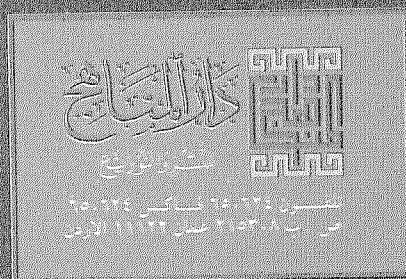 دار المناهج
للنشر والتوزيع
تلفون ٤٦٥٠٦٢٤ فاكس ٤٦٥٠٦٢٤
ص. ب ٢١٥٣٠٨ عمان ١١١٢٢ الأردن